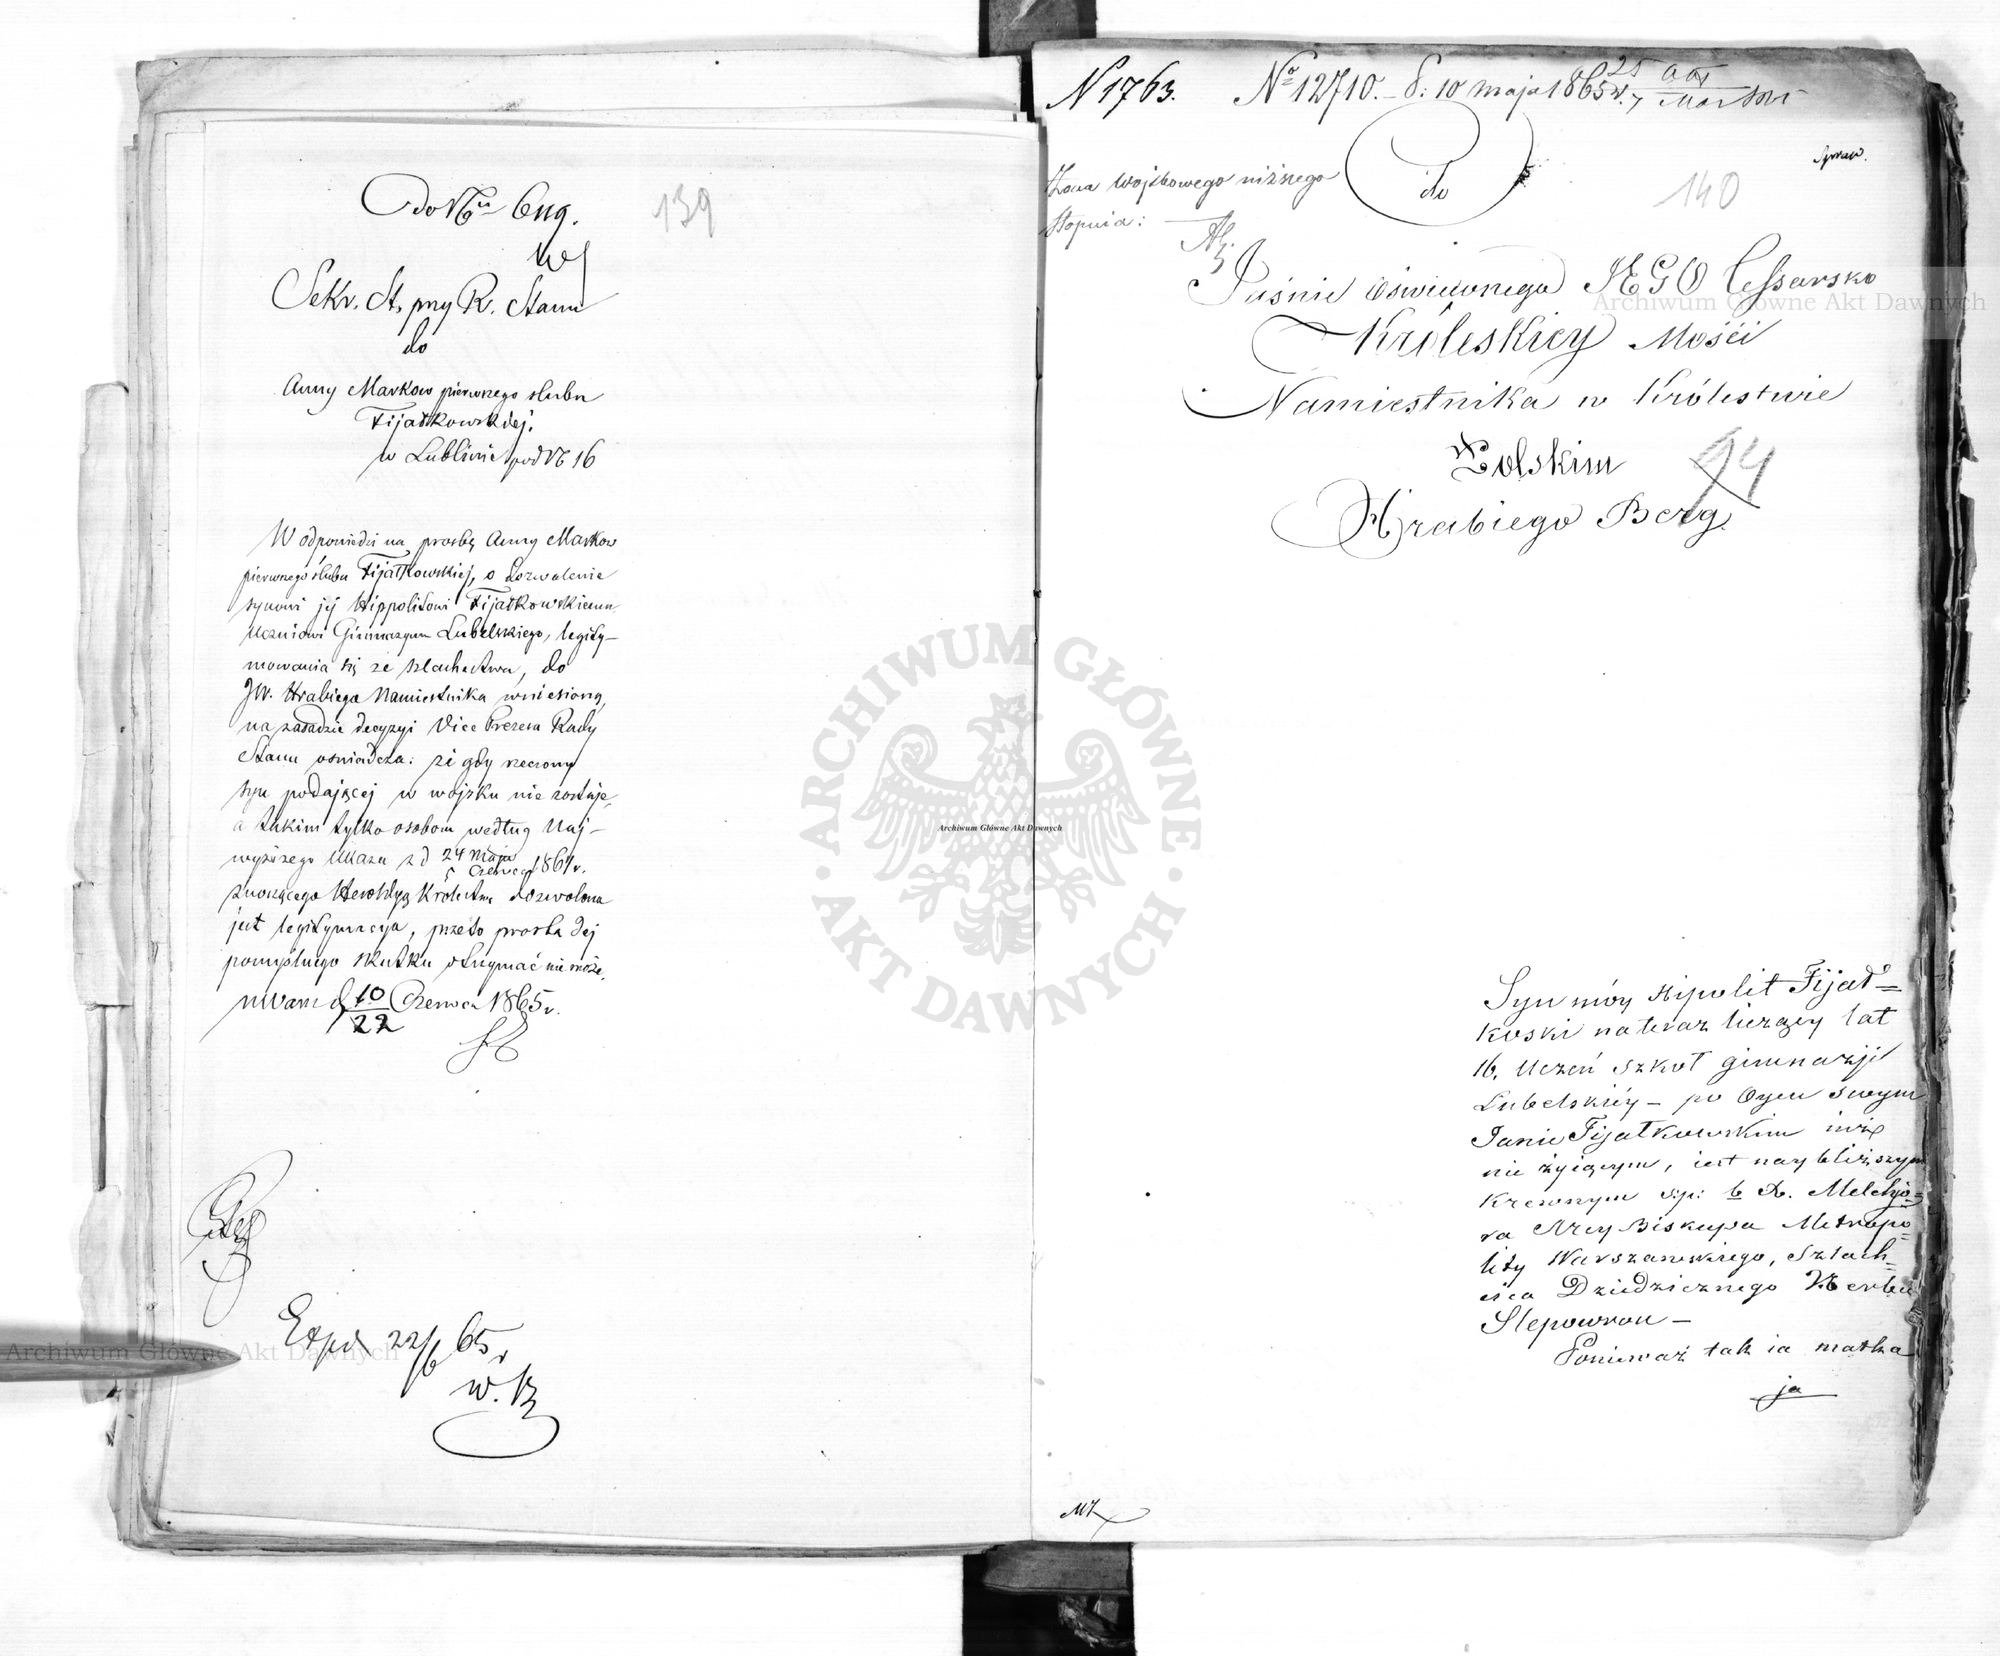 139
Sekr. St. przy R. Stanu
do
Anny Markow pierwszego ślubu
Fijałkowskiej.
w Lublinie pod N 16
W odpowiedzi na prośbę Anny Markow
pierwszego ślubu Fijałkowskiej, o dozwolenie
synowi jej Hippolitowi Fijałkowskiemu
Uczniowi Gimnazyum Lubelskiego, legity-
mowania się ze szlachectwa, do
JW. Hrabiego Namiestnika wniesioną,
na zasadzie decyzyi Vice Prezesa Rady
Stanu oświadcza: że gdy rzeczony
syn podającej w wojsku nie zostaje,
a takim tylko osobom według Naj-
wyższego Ukazu z d 24 Maja
5 Czerwca 1861 r.
znoszącego Heroldyą Królestwa dozwoloną
jest legitymacya, przeto prośba Jej
pomyślnego skutku otrzymać nie może.
d 10 Czerwca 1865 r.
22
Exped 22/6 65 r
N 1763. No 12710. d: 10 maja 1865 r.
25
Żona Wojskowego niższego
Stopnia:
do
140
Jaśnie Oświeconego JEGO Cessarsko
Króleskiey Mości
Namiestnika w Królestwie
Polskim
94
Hrabiego Berg.
Syn móy Hipolit Fijał=
koski na teraz liczący lat
16. Uczeń szkoł gimnazji
Lubelskiéy – po Oycu swym
Janie Fijałkowskim iuż
nie żyiącym, iest naybliższym
krewnym s:p: b X. Melchjo=
ra Arcy Biskupa Metropo=
lity Warszawskiego, Szlach=
cica Dziedzicznego Herbu
Slepowron –
Ponieważ tak ia matka
ja
Archiwum Główne Akt Dawnych
Archiwum Główne Akt Dawnych
Archiwum Główne Akt Dawnych
ARCHIWUM GŁÓWNE · AKT DAWNYCH ·